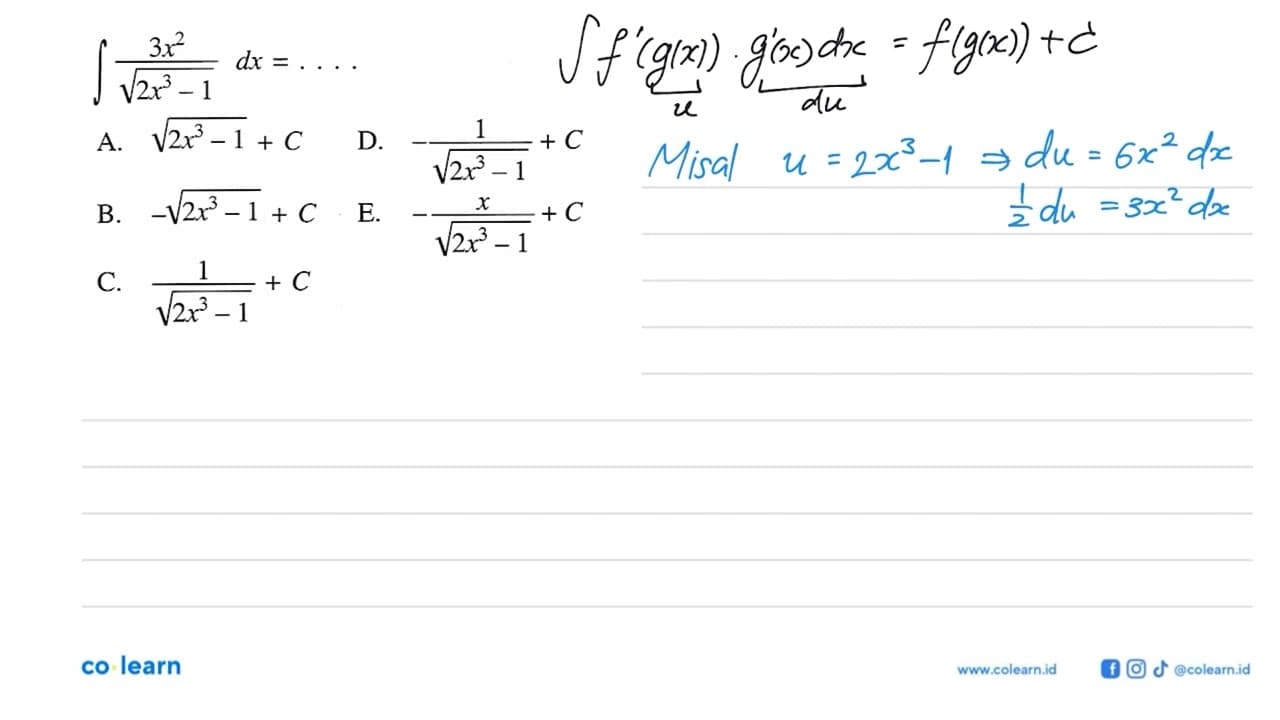 ∫ 3x²/√(2x³ – 1) dx = . . . .
A. √(2x³ – 1) + C D. –1/√(2x³ – 1) + C
B. –√(2x³ – 1) + C E. –x/√(2x³ – 1) + C
C. 1/√(2x³ – 1) + C
∫ f'(g(x)) · g'(x) dx = f(g(x)) + C
u du
Misal u = 2x³ – 1 ⇒ du = 6x² dx
1/2 du = 3x² dx
co·learn
www.colearn.id @colearn.id